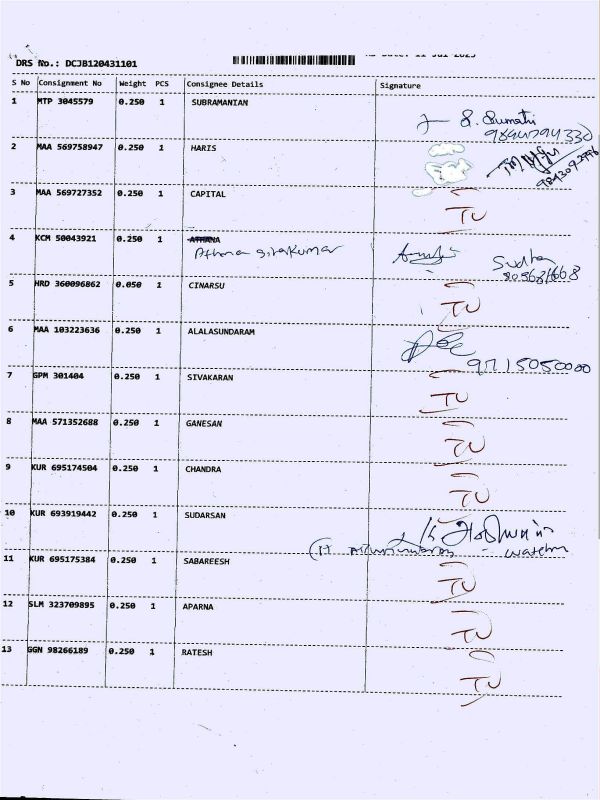 DRS No.: DCJB120431101
S No Consignment No Weight PCS Consignee Details Signature
1 MTP 3045579 0.250 1 SUBRAMANIAN
S. Sumathi
2 MAA 569758947 0.250 1 HARIS
3 MAA 569727352 0.250 1 CAPITAL
TU
4 KCM 50043921 0.250 1 ATHANA
Athana Sivakumar
Sudha
5 HRD 360096862 0.050 1 CINARSU
TU
6 MAA 103223636 0.250 1 ALALASUNDARAM
9715050000
7 GPM 301404 0.250 1 SIVAKARAN
TU
8 MAA 571352688 0.250 1 GANESAN
TU
9 KUR 695174504 0.250 1 CHANDRA
TU
10 KUR 693919442 0.250 1 SUDARSAN
11 KUR 695175384 0.250 1 SABAREESH
TU
12 SLM 323709895 0.250 1 APARNA
TU
13 GGN 98266189 0.250 1 RATESH
TU